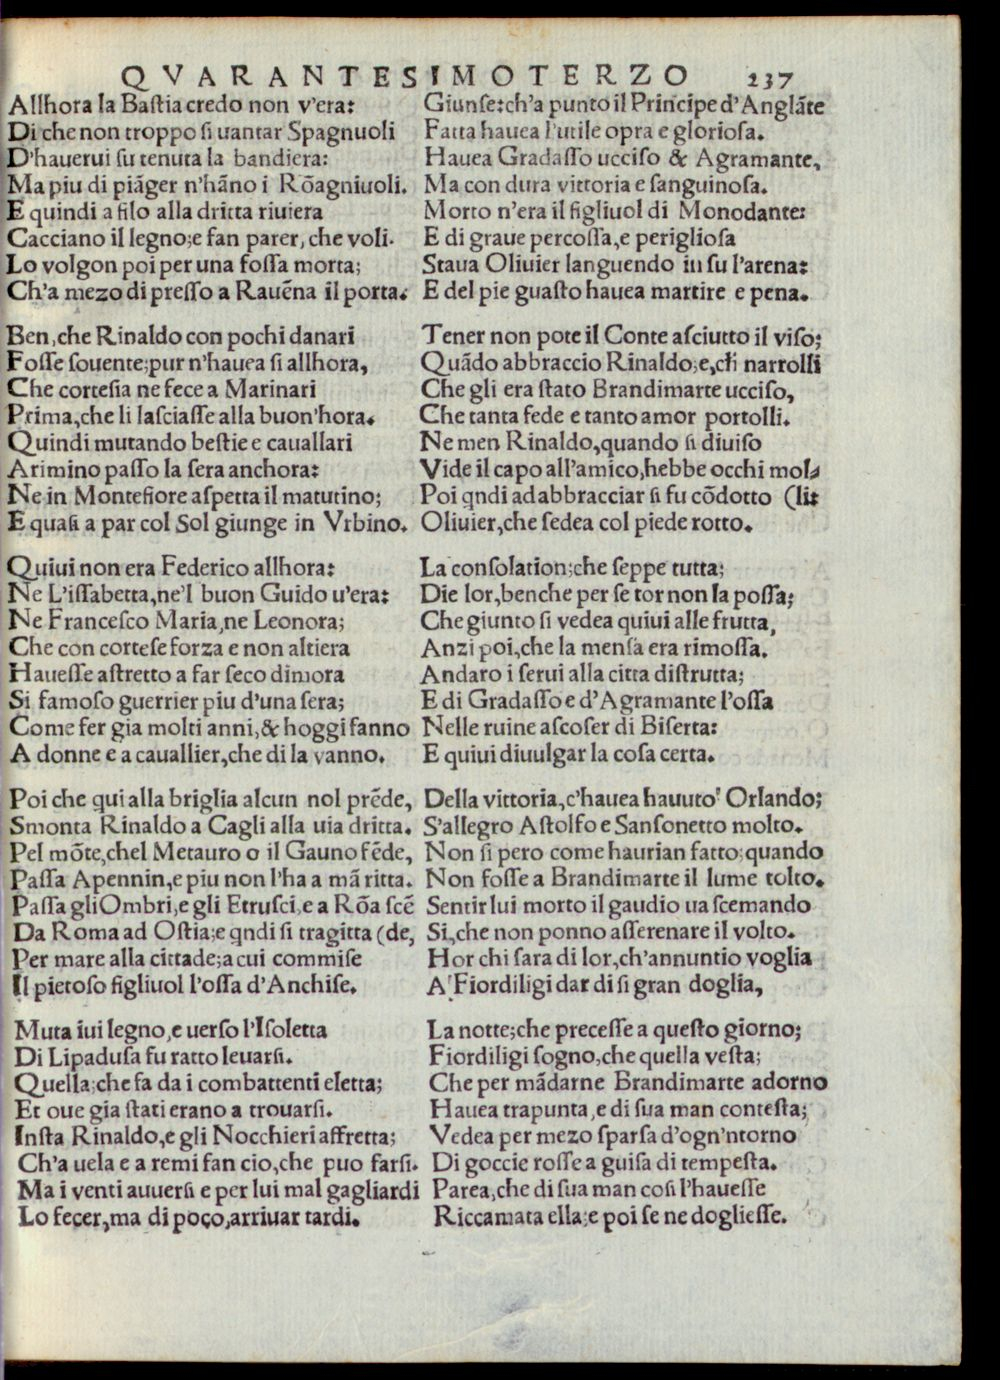 QVARANTESIMOTERZO 237
Allhora la Bastia credo non v'era:
Di che non troppo si uantar Spagnuoli
D'hauerui su tenuta la bandiera:
Ma piu di piāger n'hāno i Rōagniuoli.
E quindi a filo alla dritta riuiera
Cacciano il legno;e fan parer, che voli.
Lo volgon poi per una fossa morta;
Ch'a mezo di presso a Rauēna il porta.
Ben,che Rinaldo con pochi danari
Fosse souente;pur n'hauea si allhora,
Che cortesia ne fece a Marinari
Prima,che li lasciasse alla buon'hora.
Quindi mutando bestie e cauallari
Arimino passo la sera anchora:
Ne in Montefiore aspetta il matutino;
E quasi a par col Sol giunge in Vrbino.
Quiui non era Federico allhora:
Ne L'issabetta,ne'l buon Guido u'era:
Ne Francesco Maria,ne Leonora;
Che con cortese forza e non altiera
Hauesse astretto a far seco dimora
Si famoso guerrier piu d'una sera;
Come fer gia molti anni,& hoggi fanno
A donne e a cauallier,che di la vanno.
Poi che qui alla briglia alcun nol prēde,
Smonta Rinaldo a Cagli alla uia dritta.
Pel mōte,chel Metauro o il Gauno fēde,
Passa Apennin,e piu non l'ha a mā ritta.
Passa gli Ombri,e gli Etrusci,e a Rōa scē
Da Roma ad Ostia;e qndi si tragitta (de,
Per mare alla cittade;a cui commise
Il pietoso figliuol l'ossa d'Anchise.
Muta iui legno,e uerso l'Isoletta
Di Lipadusa fu ratto leuarsi.
Quella;che fa da i combattenti eletta;
Et oue gia stati erano a trouarsi.
Insta Rinaldo,e gli Nocchieri affretta;
Ch'a uela e a remi fan cio,che puo farsi.
Ma i venti auuersi e per lui mal gagliardi
Lo fecer,ma di poco,arriuar tardi.
Giunse:ch'a punto il Principe d'Anglāte
Fatta hauea l'utile opra e gloriosa.
Hauea Gradasso ucciso & Agramante,
Ma con dura vittoria e sanguinosa.
Morto n'era il figliuol di Monodante:
E di graue percossa,e perigliosa
Staua Oliuier languendo in su l'arena:
E del pie guasto hauea martire e pena.
Tener non pote il Conte asciutto il viso;
Quādo abbraccio Rinaldo;e,ch narrolli
Che gli era stato Brandimarte ucciso,
Che tanta fede e tanto amor portolli.
Ne men Rinaldo,quando si diuiso
Vide il capo all'amico,hebbe occhi mol-
Poi qndi ad abbracciar si fu cōdotto (li:
Oliuier,che sedea col piede rotto.
La consolation;che seppe tutta;
Die lor,benche per se tor non la possa;
Che giunto si vedea quiui alle frutta,
Anzi poi,che la mensa era rimossa.
Andaro i serui alla citta distrutta;
E di Gradasso e d'Agramante l'ossa
Nelle ruine ascoser di Biserta:
E quiui diuulgar la cosa certa.
Della vittoria,c'hauea hauuto Orlando;
S'allegro Astolfo e Sansonetto molto.
Non si pero come haurian fatto;quando
Non fosse a Brandimarte il lume tolto.
Sentir lui morto il gaudio ua scemando
Si,che non ponno asserenare il volto.
Hor chi sara di lor,ch'annuntio voglia
A' Fiordiligi dar di si gran doglia,
La notte;che precesse a questo giorno;
Fiordiligi sogno,che quella vesta;
Che per mādarne Brandimarte adorno
Hauea trapunta,e di sua man contesta;
Vedea per mezo sparsa d'ogn'ntorno
Di goccie rosse a guisa di tempesta.
Parea,che di sua man cosi l'hauesse
Riccamata ella;e poi se ne dogliesse.